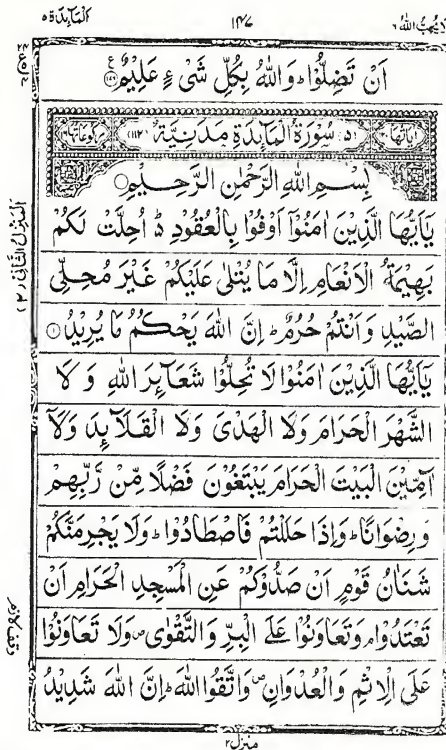 لَا يُحِبُّ اللّٰهُ ٦ ١٤٧ اَلْمَآئِدَة ٥
اَنْ تَضِلُّوْا ؕ وَاللّٰهُ بِكُلِّ شَیْءٍ عَلِیْمٌ ﴿۱۷۶﴾
اٰیَاتُهَا ١٢٠ (٥) سُوْرَةُ الْمَآئِدَةِ مَدَنِیَّةٌ (١١٢) رُكُوْعَاتُهَا ١٦
بِسْمِ اللّٰهِ الرَّحْمٰنِ الرَّحِیْمِ
یٰۤاَیُّهَا الَّذِیْنَ اٰمَنُوْۤا اَوْفُوْا بِالْعُقُوْدِ ؕ۬ اُحِلَّتْ لَكُمْ
بَهِیْمَةُ الْاَنْعَامِ اِلَّا مَا یُتْلٰی عَلَیْكُمْ غَیْرَ مُحِلِّی
الصَّیْدِ وَاَنْتُمْ حُرُمٌ ؕ اِنَّ اللّٰهَ یَحْكُمُ مَا یُرِیْدُ ﴿۱﴾
یٰۤاَیُّهَا الَّذِیْنَ اٰمَنُوْا لَا تُحِلُّوْا شَعَآئِرَ اللّٰهِ وَلَا
الشَّهْرَ الْحَرَامَ وَلَا الْهَدْیَ وَلَا الْقَلَآئِدَ وَلَاۤ
آمِّیْنَ الْبَیْتَ الْحَرَامَ یَبْتَغُوْنَ فَضْلًا مِّنْ رَّبِّهِمْ
وَرِضْوَانًا ؕ وَاِذَا حَلَلْتُمْ فَاصْطَادُوْا ؕ وَلَا یَجْرِمَنَّكُمْ
شَنَاٰنُ قَوْمٍ اَنْ صَدُّوْكُمْ عَنِ الْمَسْجِدِ الْحَرَامِ اَنْ
تَعْتَدُوْا ۘ وَتَعَاوَنُوْا عَلَی الْبِرِّ وَالتَّقْوٰی ۪ وَلَا تَعَاوَنُوْا
عَلَی الْاِثْمِ وَالْعُدْوَانِ ۪ وَاتَّقُوا اللّٰهَ ؕ اِنَّ اللّٰهَ شَدِیْدُ
منزل ٢
اَلْمَنْزِلُ الثَّانِیْ (٢)
وقف لازم